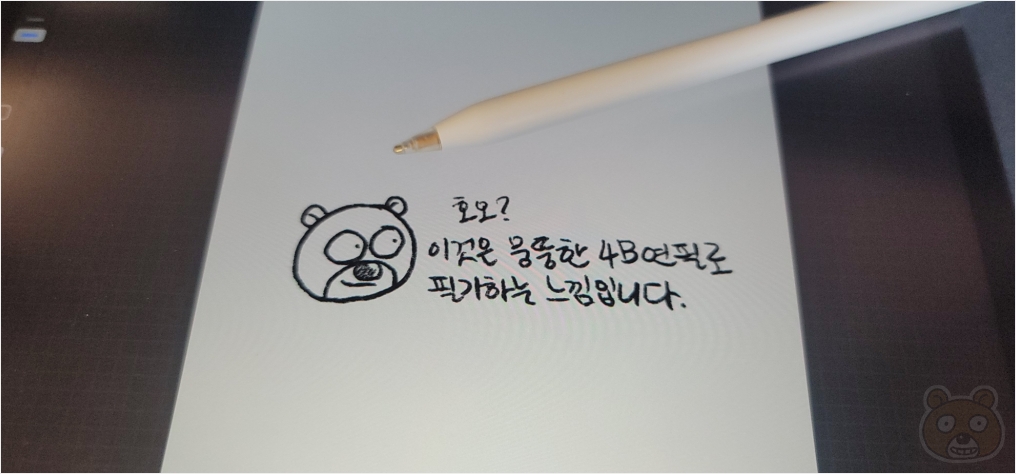 호오?
이것은 뭉뚱한 4B연필로
필기하는 느낌입니다.